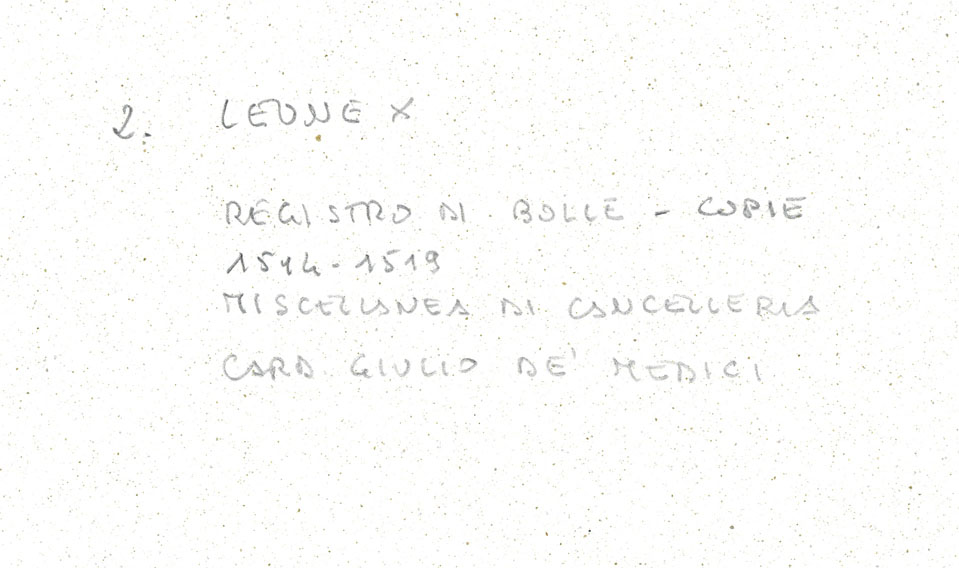 2. LEONE X
REGISTRO DI BOLLE - COPIE
1514-1519
MISCELLANEA DI CANCELLERIA
CARD GIULIO DE' MEDICI